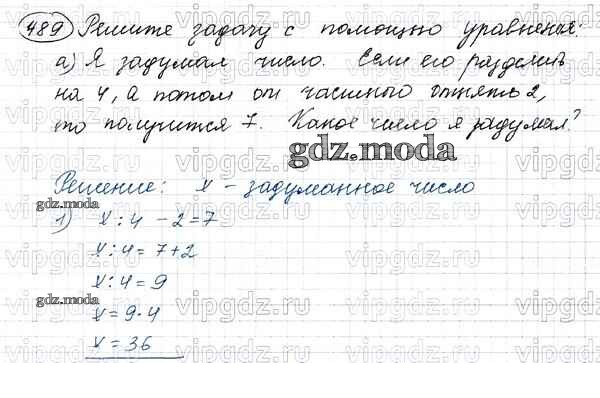 489 Решите задачу с помощью уравнения:
а) Я задумал число. Если его разделить
на 4, а потом от частного отнять 2,
то получится 7. Какое число я задумал?
gdz.moda
Решение: х - задуманное число
gdz.moda
1) х : 4 - 2 = 7
х : 4 = 7 + 2
х : 4 = 9
gdz.moda
х = 9 · 4
х = 36
vipgdz.ru